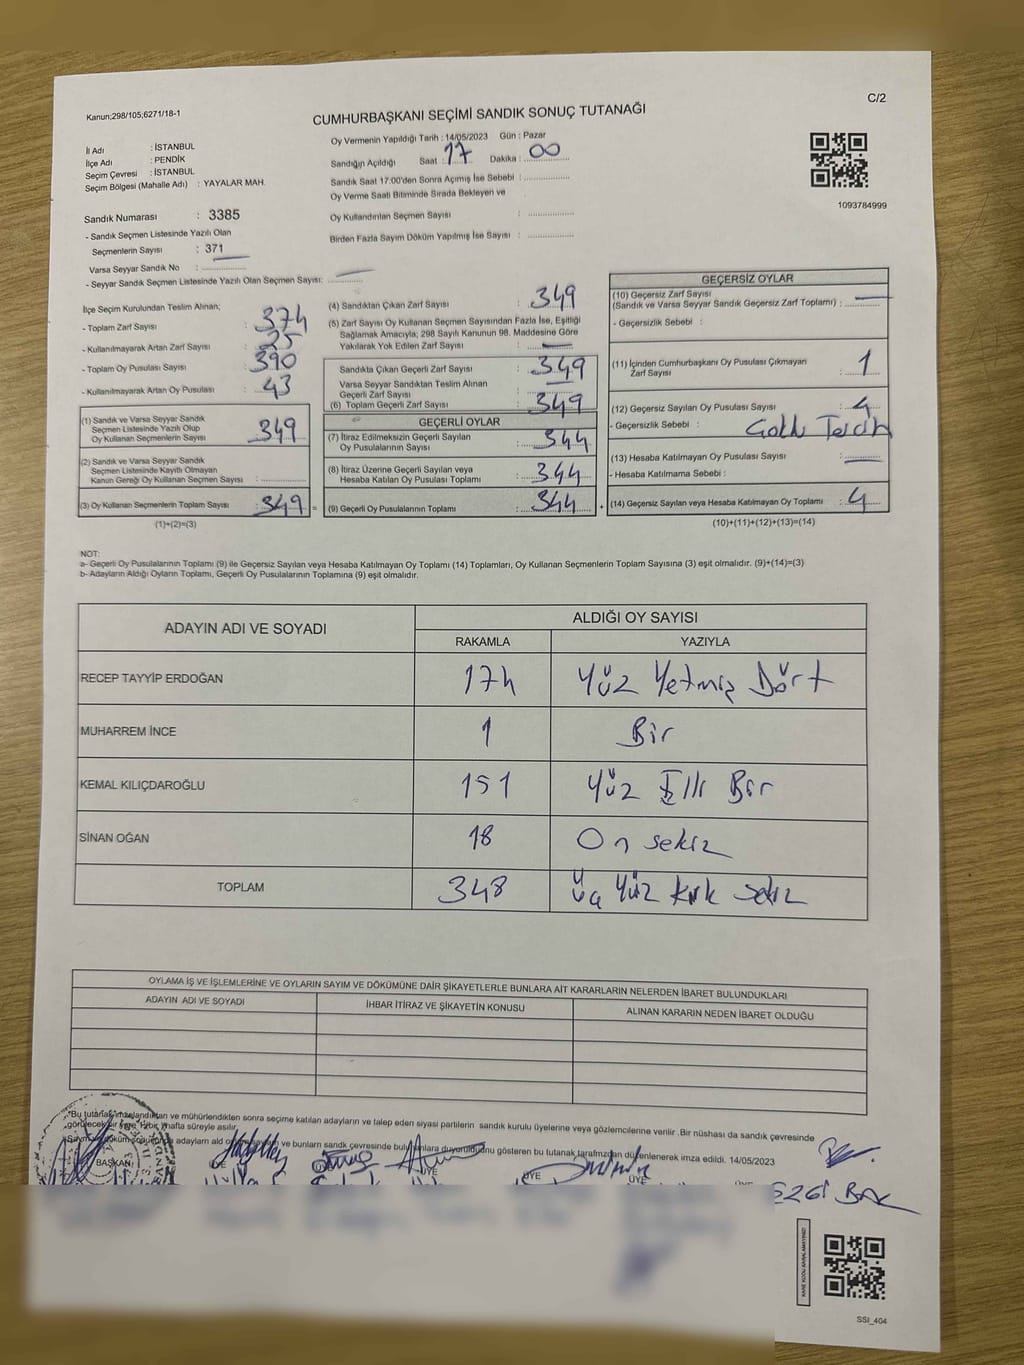 Kanun;298/105;6271/18-1
C/2
CUMHURBAŞKANI SEÇİMİ SANDIK SONUÇ TUTANAĞI
İl Adı : İSTANBUL
İlçe Adı : PENDİK
Seçim Çevresi : İSTANBUL
Seçim Bölgesi (Mahalle Adı) : YAYALAR MAH.
Sandık Numarası : 3385
- Sandık Seçmen Listesinde Yazılı Olan
Seçmenlerin Sayısı : 371
Varsa Seyyar Sandık No :
- Seyyar Sandık Seçmen Listesinde Yazılı Olan Seçmen Sayısı:
Oy Vermenin Yapıldığı Tarih : 14/05/2023 Gün : Pazar
Sandığın Açıldığı Saat : 17 Dakika : 00
Sandık Saat 17:00'den Sonra Açımış İse Sebebi :
Oy Verme Saati Bitiminde Sırada Bekleyen ve
Oy Kullandırılan Seçmen Sayısı :
Birden Fazla Sayım Döküm Yapılmış İse Sayısı :
1093784999
İlçe Seçim Kurulundan Teslim Alınan;
- Toplam Zarf Sayısı : 374
- Kullanılmayarak Artan Zarf Sayısı : 25
- Toplam Oy Pusulası Sayısı : 390
- Kullanılmayarak Artan Oy Pusulası : 43
(1) Sandık ve Varsa Seyyar Sandık
Seçmen Listesinde Yazılı Olup
Oy Kullanan Seçmenlerin Sayısı : 349
(2) Sandık ve Varsa Seyyar Sandık
Seçmen Listesinde Kayıtlı Olmayan
Kanun Gereği Oy Kullanan Seçmen Sayısı :
(3) Oy Kullanan Seçmenlerin Toplam Sayısı : 349 =
(1)+(2)=(3)
(4) Sandıktan Çıkan Zarf Sayısı : 349
(5) Zarf Sayısı Oy Kullanan Seçmen Sayısından Fazla İse, Eşitliği
Sağlamak Amacıyla; 298 Sayılı Kanunun 98. Maddesine Göre
Yakılarak Yok Edilen Zarf Sayısı :
Sandıkta Çıkan Geçerli Zarf Sayısı : 349
Varsa Seyyar Sandıktan Teslim Alınan
Geçerli Zarf Sayısı :
(6) Toplam Geçerli Zarf Sayısı : 349
GEÇERLİ OYLAR
(7) İtiraz Edilmeksizin Geçerli Sayılan
Oy Pusulasının Sayısı : 344
(8) İtiraz Üzerine Geçerli Sayılan veya
Hesaba Katılan Oy Pusulası Toplamı : 344
(9) Geçerli Oy Pusulalarının Toplamı : 344 +
GEÇERSİZ OYLAR
(10) Geçersiz Zarf Sayısı
(Sandık ve Varsa Seyyar Sandık Geçersiz Zarf Toplamı) :
- Geçersizlik Sebebi :
(11) İçinden Cumhurbaşkanı Oy Pusulası Çıkmayan
Zarf Sayısı : 1
(12) Geçersiz Sayılan Oy Pusulası Sayısı : 4
- Geçersizlik Sebebi : Çoklu Tercih
(13) Hesaba Katılmayan Oy Pusulası Sayısı :
- Hesaba Katılmama Sebebi :
(14) Geçersiz Sayılan veya Hesaba Katılmayan Oy Toplamı : 4
(10)+(11)+(12)+(13)=(14)
NOT:
a- Geçerli Oy Pusulalarının Toplamı (9) ile Geçersiz Sayılan veya Hesaba Katılmayan Oy Toplamı (14) Toplamları, Oy Kullanan Seçmenlerin Toplam Sayısına (3) eşit olmalıdır. (9)+(14)=(3)
b- Adayların Aldığı Oyların Toplamı, Geçerli Oy Pusulalarının Toplamına (9) eşit olmalıdır.
ADAYIN ADI VE SOYADI ALDIĞI OY SAYISI
RAKAMLA YAZIYLA
RECEP TAYYİP ERDOĞAN 174 Yüz Yetmiş Dört
MUHARREM İNCE 1 Bir
KEMAL KILIÇDAROĞLU 151 Yüz Elli Bir
SİNAN OĞAN 18 On sekiz
TOPLAM 348 üç Yüz kırk sekiz
OYLAMA İŞ VE İŞLEMLERİNE VE OYLARIN SAYIM VE DÖKÜMÜNE DAİR ŞİKAYETLERLE BUNLARA AİT KARARLARIN NELERDEN İBARET BULUNDUKLARI
ADAYIN ADI VE SOYADI İHBAR İTİRAZ VE ŞİKAYETİN KONUSU ALINAN KARARIN NEDEN İBARET OLDUĞU
"Bu tutanak imzalandıktan ve mühürlendikten sonra seçime katılan adayların ve talep eden siyasi partilerin sandık kurulu üyelerine veya gözlemcilerine verilir .Bir nüshası da sandık çevresinde
görülecek bir yere bir hafta süreyle asılır.
adayların ve bunların sandık çevresinde gösteren bu tutanak tarafımızdan düzenlenerek imza edildi. 14/05/2023
BAŞKAN ÜYE ÜYE ÜYE ÜYE
SSİ_404